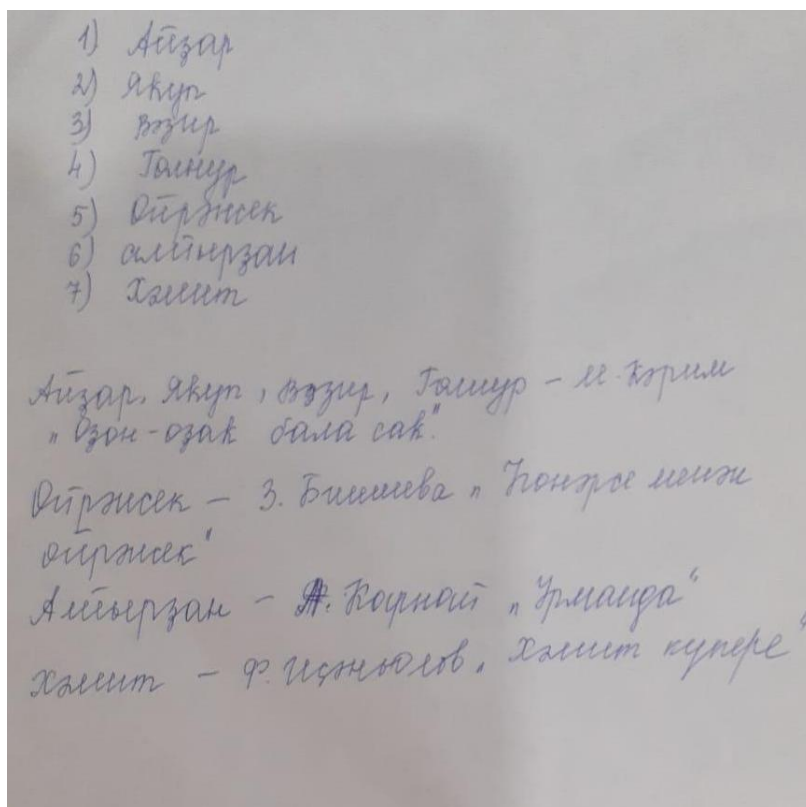 1) Айзар
2) Якуп
3) Вәзир
4) Гөлнур
5) Өйрәнсек
6) Алтырзан
7) Хәмит
Айзар, Якуп, Вәзир, Гөлнур – М. Кәрим
„Озон-озак бала сак".
Өйрәнсек – З. Биишева „Һөнәрсе менән
өйрәнсек"
Алтырзан – А. Карнай „Урманда"
Хәмит – Ф. Иҫәнғолов „Хәмит күпере"